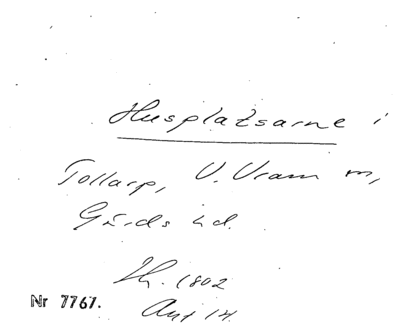 Husplatsarne i
Tollarp, V. Vram m,
Gärds hd.
Th. 1802
Nr 7767.
Akt 14.